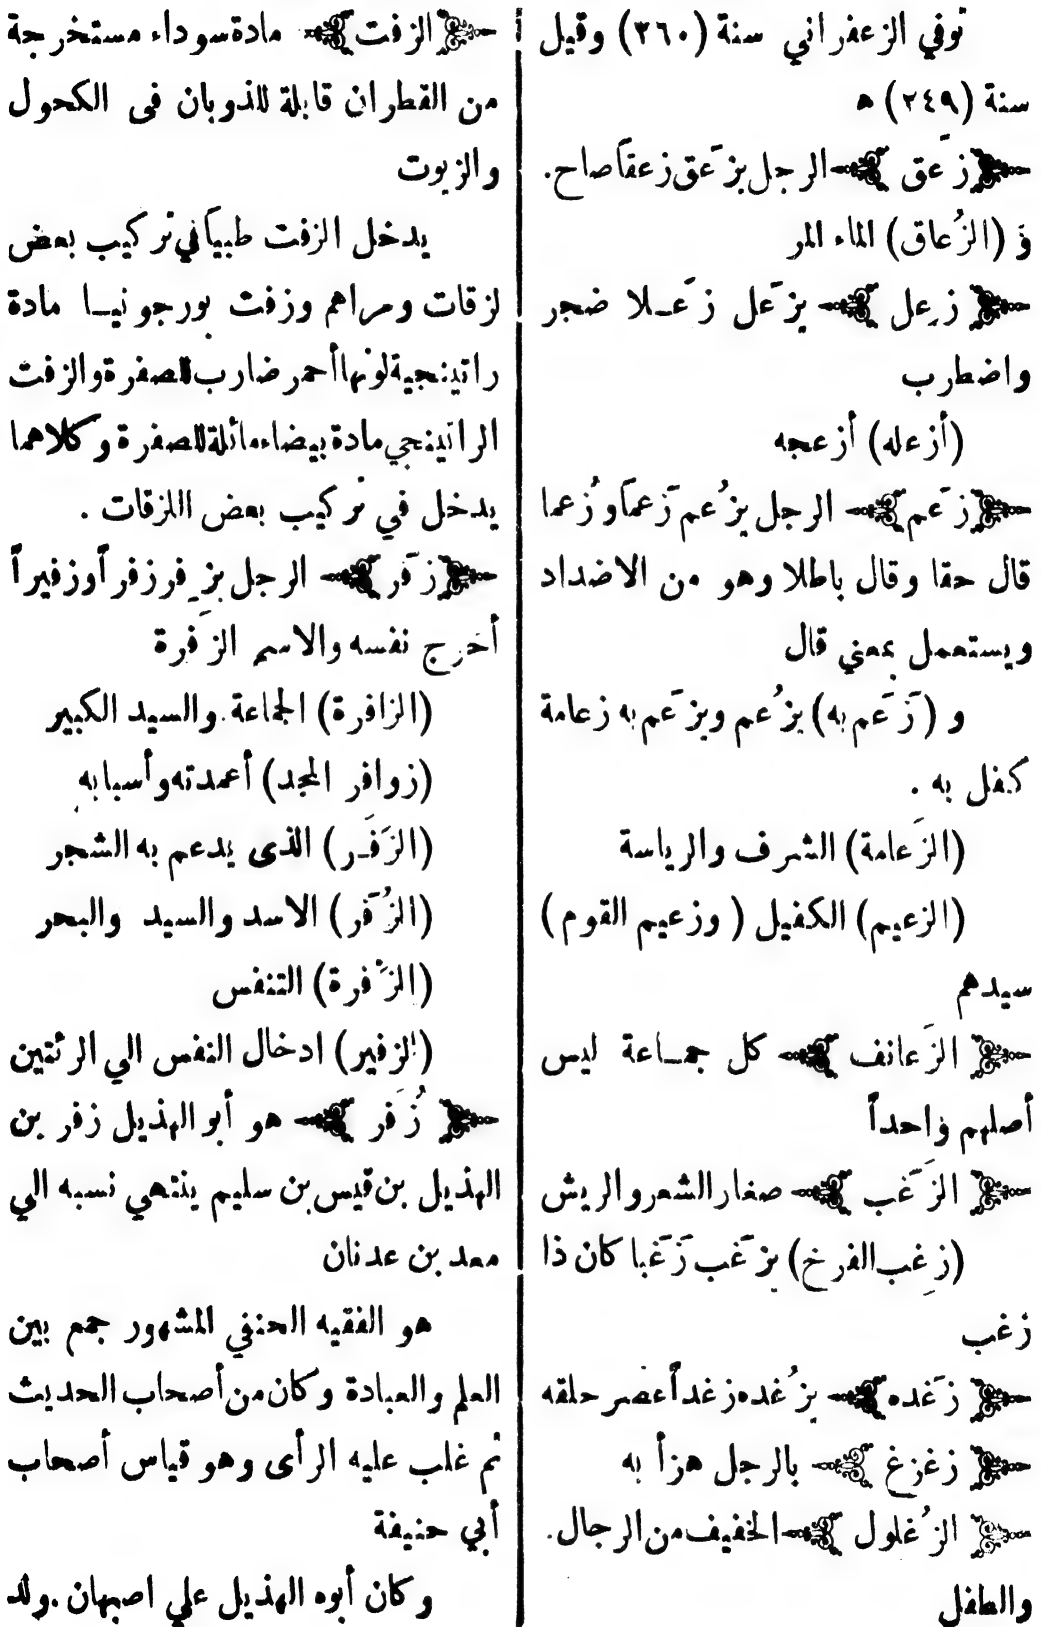 توفي الزعفراني سنة (٣٦٠) وقيل
سنة (٢٤٩) ه
﴿زَعق﴾ الرجل يزعَق زعقاً صاح.
و (الزُعاق) الماء المر
﴿زعِل﴾ يزعَل زعَـلا ضجر
واضطرب
(أزعله) أزعجه
﴿زعَم﴾ الرجل يزعُم زَعماً وزُعما
قال حقا وقال باطلا وهو من الاضداد
ويستعمل بمعني قال
و (زَعَم به) يزعُم ويزعَم به زعامة
كفل به .
(الزَعامة) الشرف والرياسة
(الزعيم) الكفيل (وزعيم القوم)
سيدهم
﴿الزَعانف﴾ كل جمـاعة ليس
أصلهم واحداً
﴿الزَغَب﴾ صغار الشعر والريش
(زغِب الفرخ) يزغَب زَغَبا كان ذا
زغب
﴿زغَده﴾ يزغُده زغداً عصر حلقه
﴿زغزغ﴾ بالرجل هزأ به
﴿الزُغلول﴾ الخفيف من الرجال.
والطفل
﴿الزفت﴾ مادة سوداء مستخرجة
من القطران قابلة للذوبان فى الكحول
والزيوت
يدخل الزفت طبياً في تركيب بعض
لزقات ومراهم وزفت بورجونيـا مادة
راتينجية لونها أحمر ضارب للصفرة والزفت
الراتينجي مادة بيضاء مائلة للصفرة وكلاهما
يدخل في تركيب بعض اللزقات .
﴿زفَر﴾ الرجل يزفِر زفراً وزفيراً
أخرج نفسه والاسم الزَفرة
(الزافرة) الجماعة. والسيد الكبير
(زوافر المجد) أعمدته وأسبابه
(الزَفَـر) الذى يدعم به الشجر
(الزُفَر) الاسد والسيد والبحر
(الزَفرة) التنفس
(الزفير) ادخال النفس الي الرئتين
﴿زُفَر﴾ هو أبو الهذيل زفر بن
الهذيل بن قيس بن سليم ينتهي نسبه الي
معد بن عدنان
هو الفقيه الحنفي المشهور جمع بين
العلم والعبادة وكان من أصحاب الحديث
ثم غلب عليه الرأى وهو قياس أصحاب
أبي حنيفة
وكان أبوه الهذيل علي اصبهان . ولد